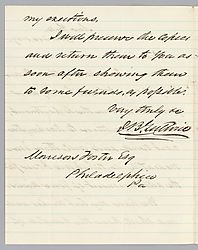 my exertions.
I will preserve the copies
and return them to you as
soon after showing them
to some friends, as possible.
Very truly &c
Morrison Foster Esq
Philadelphia
Pa